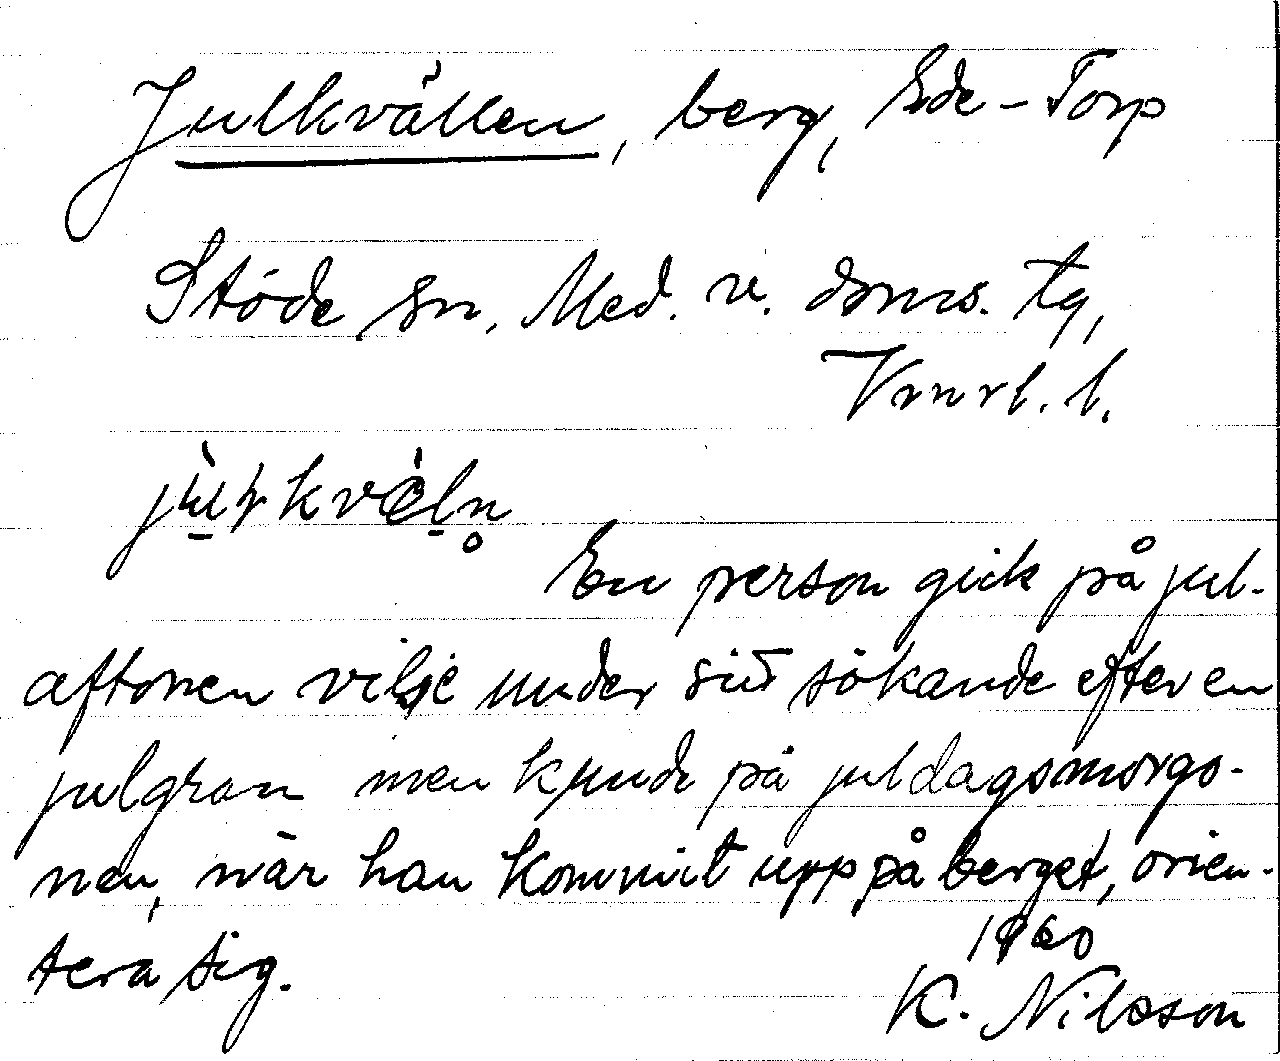 Julkvällen, berg, Ede-Torp
Stöde sn, Med. v. doms. tg,
Vrnrl. l.
En person gick på jul-
aftonen vilse under sitt sökande efter en
julgran men kunde på juldagsmorgo-
nen, när han kommit upp på berget, orien-
tera sig.
1960
K. Nilsson